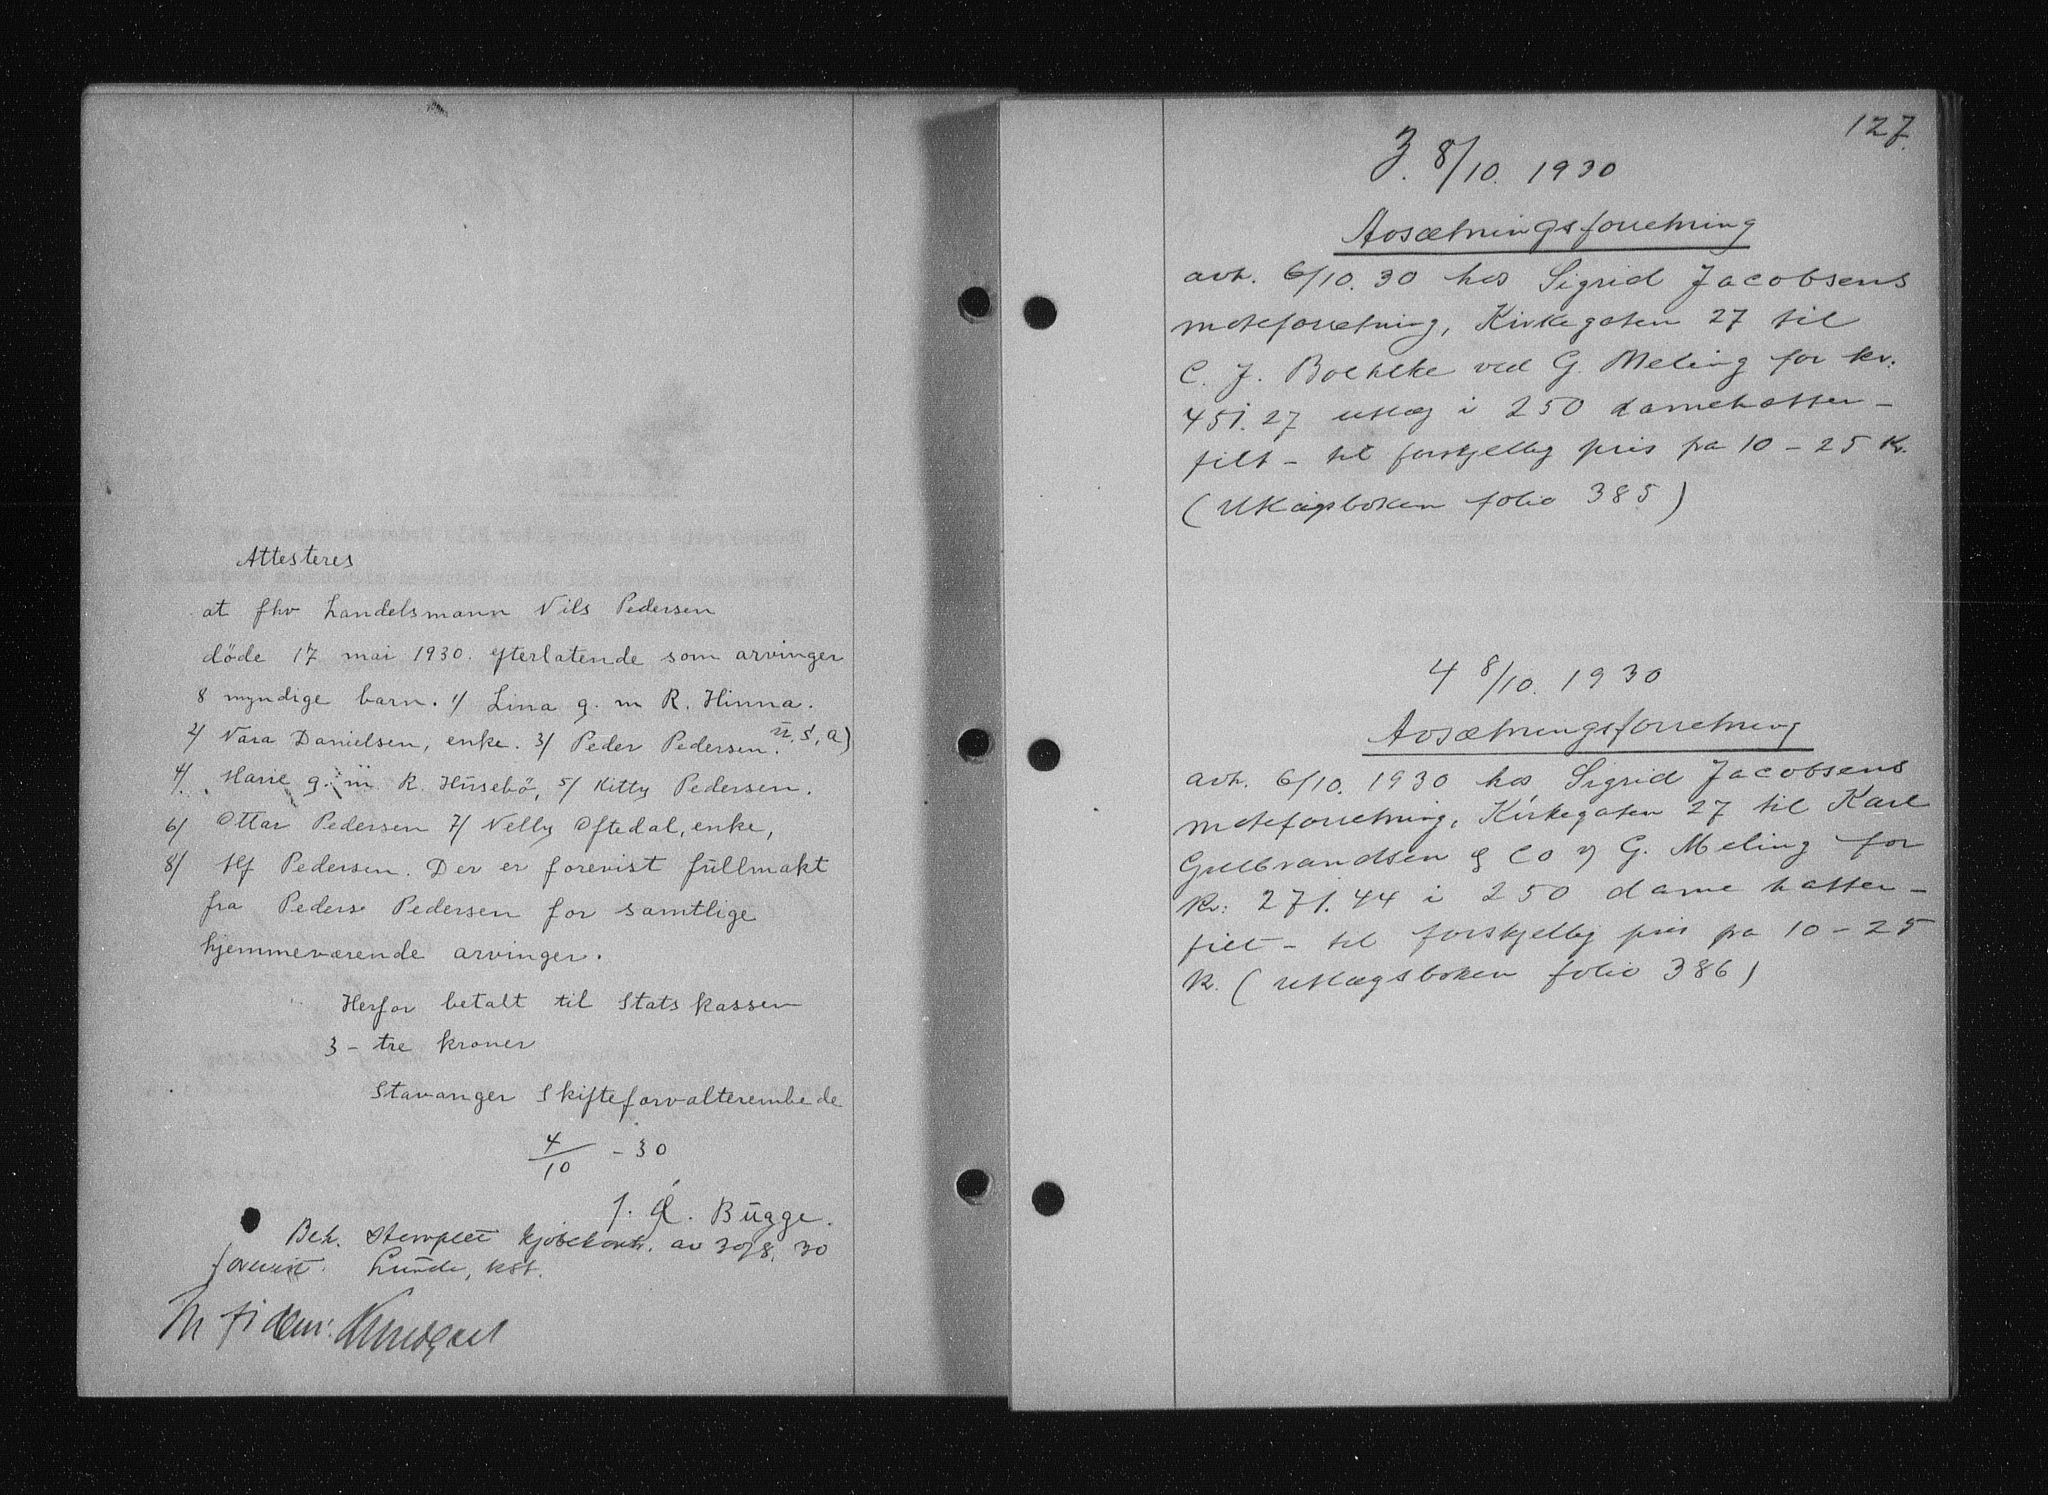 Attesteres
at fhv handelsmann Nils Pedersen
døde 17 mai 1930. efterlatende som arvinger
8 myndige barn. 1/ Lina g. m R. Hinna.
2/ Nara Danielsen, enke. 3/ Peder Pedersen. U. S, a)
4/ Marie g. m. R. Husebö, 5/ Kitty Pedersen.
6/ Ottar Pedersen 7/ Nelly Oftedal, enke,
8/ Alf Pedersen. Der er forevist fullmakt
fra Peders Pedersen for samtlige
hjemmeværende arvinger.
Herfor betalt til Statskassen
3 - tre kroner
Stavanger Skifteforvalterembede
4/10 - 30
Bugge.
Beh. Stemplet kjøbekontr. av 30/8. 30
forevist. Lunde, kst.
In fidem:
127.
3. 8/10. 1930
Avsætningsforretning
avh. 6/10. 30 hos Sigrid Jacobsens
moteforretning, Kirkegaten 27 til
C. J. Boehlke ved G. Meling for kr.
451.27 utlæg i 250 damehatter -
filt - til forskjellig pris fra 10 - 25 Kr.
(Utlægsboken folio 385)
4 8/10. 1930
Avsætningsforretning
avh. 6/10. 1930 hos Sigrid Jacobsens
moteforretning, Kirkegaten 27 til Karl
Gulbrandsen & Co v G. Meling for
kr: 271.44 i 250 dame hatter -
filt - til forskjellig pris fra 10 - 25
kr. (utlægsboken folio 386)